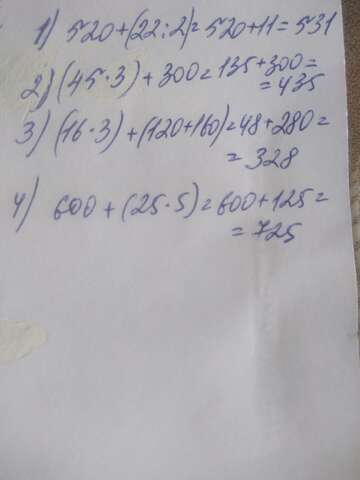 1) 520+(22:2)=520+11=531
2) (45·3)+300=135+300=
=435
3) (16·3)+(120+160)=48+280=
=328
4) 600+(25·5)=600+125=
=725